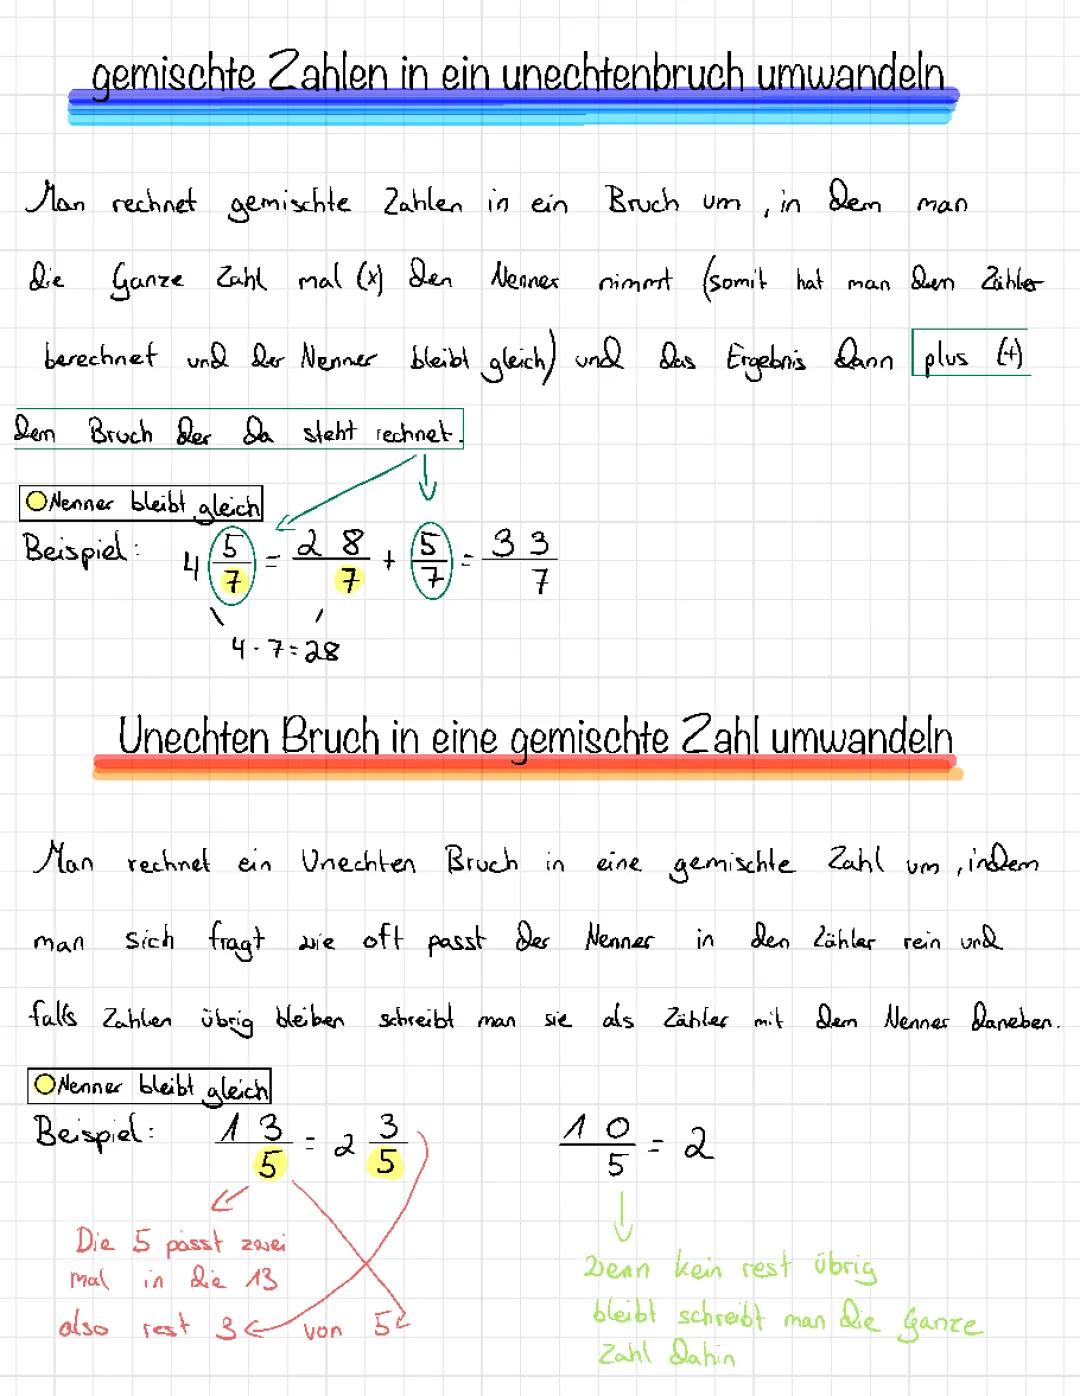 gemischte Zahlen in ein unechtenbruch umwandeln
Man rechnet gemischte Zahlen in ein Bruch um, in dem man
die Ganze Zahl mal (x) den Nenner nimmt (somit hat man den Zähler
berechnet und der Nenner bleibt gleich) und das Ergebnis dann plus (+)
dem Bruch der da steht rechnet.
Nenner bleibt gleich
Beispiel: 4 5/7 = 28/7 + 5/7 = 33/7
4 · 7 = 28
Unechten Bruch in eine gemischte Zahl umwandeln
Man rechnet ein Unechten Bruch in eine gemischte Zahl um, indem
man sich fragt wie oft passt der Nenner in den Zähler rein und
falls Zahlen übrig bleiben schreibt man sie als Zähler mit dem Nenner daneben.
Nenner bleibt gleich
Beispiel: 13/5 = 2 3/5
10/5 = 2
Die 5 passt zwei
mal in die 13
also rest 3 von 5
Wenn kein rest übrig
bleibt schreibt man die Ganze
Zahl dahin